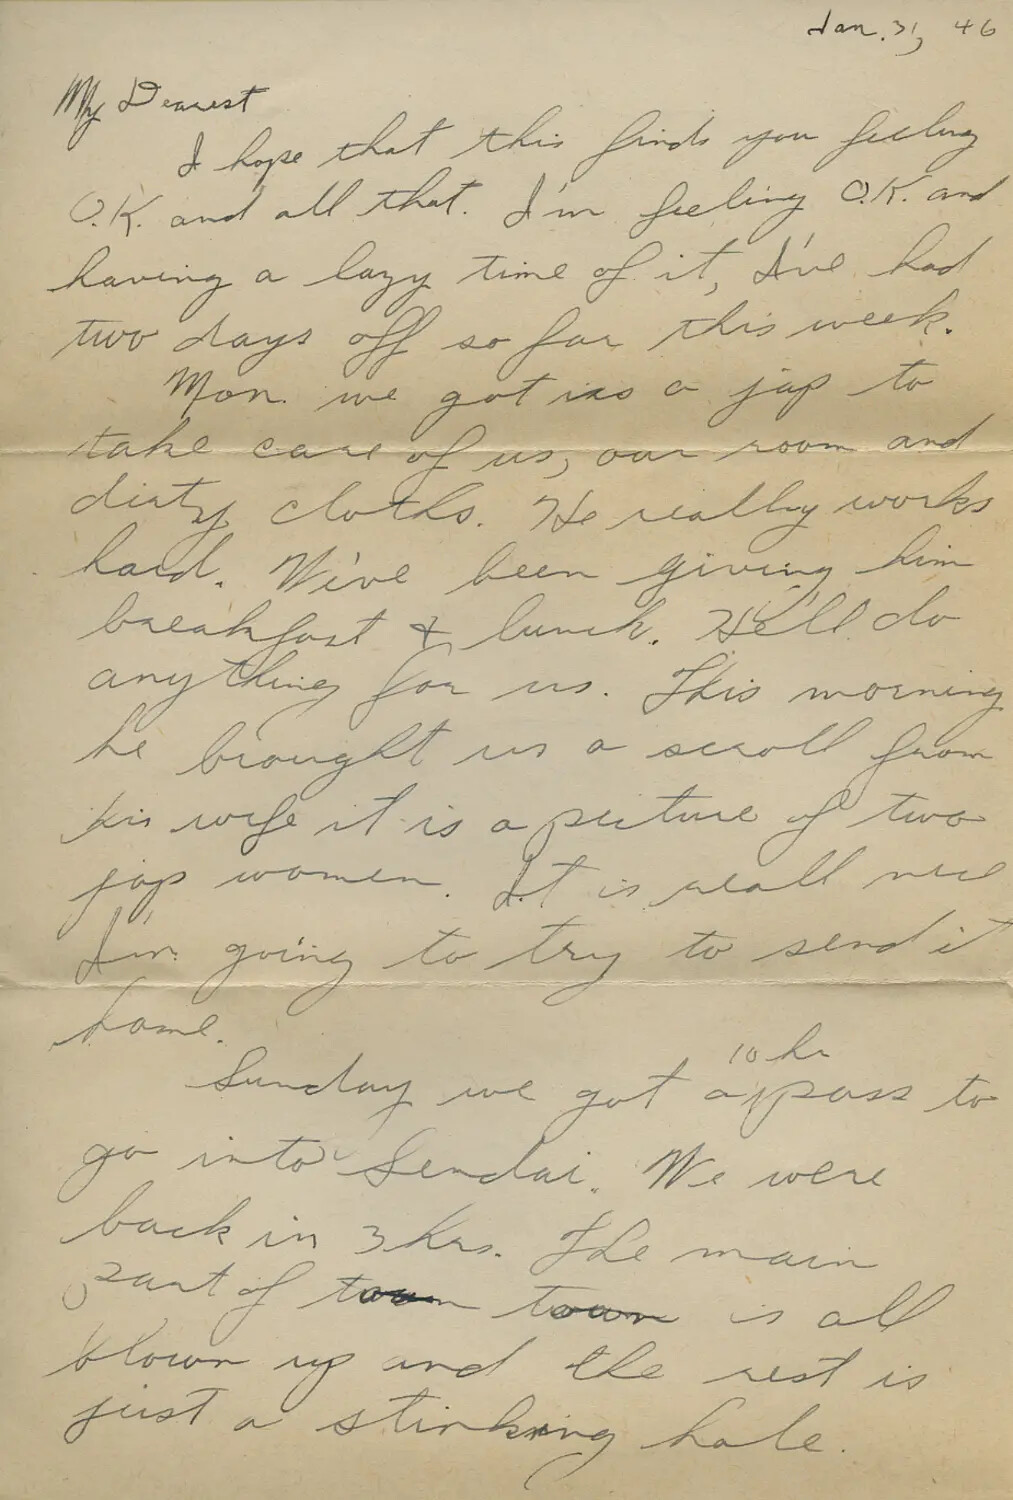 Jan. 31, 46
My Dearest
I hope that this finds you feeling
O.K. and all that. I'm feeling O.K. and
having a lazy time of it, I've had
two days off so far this week.
Mon. we got us a jap to
take care of us, our room and
dirty cloths. He really works
hard. We've been giving him
breakfast & lunch. He'll do
anything for us. This morning
he brought us a scroll from
his wife it is a picture of two
jap women. It is reall nice
I'm going to try to send it
home.
10 hr
Sunday we got a pass to
go into Sendai. We were
back in 3 hrs. The main
part of town town is all
blown up and the rest is
just a stinking hole.